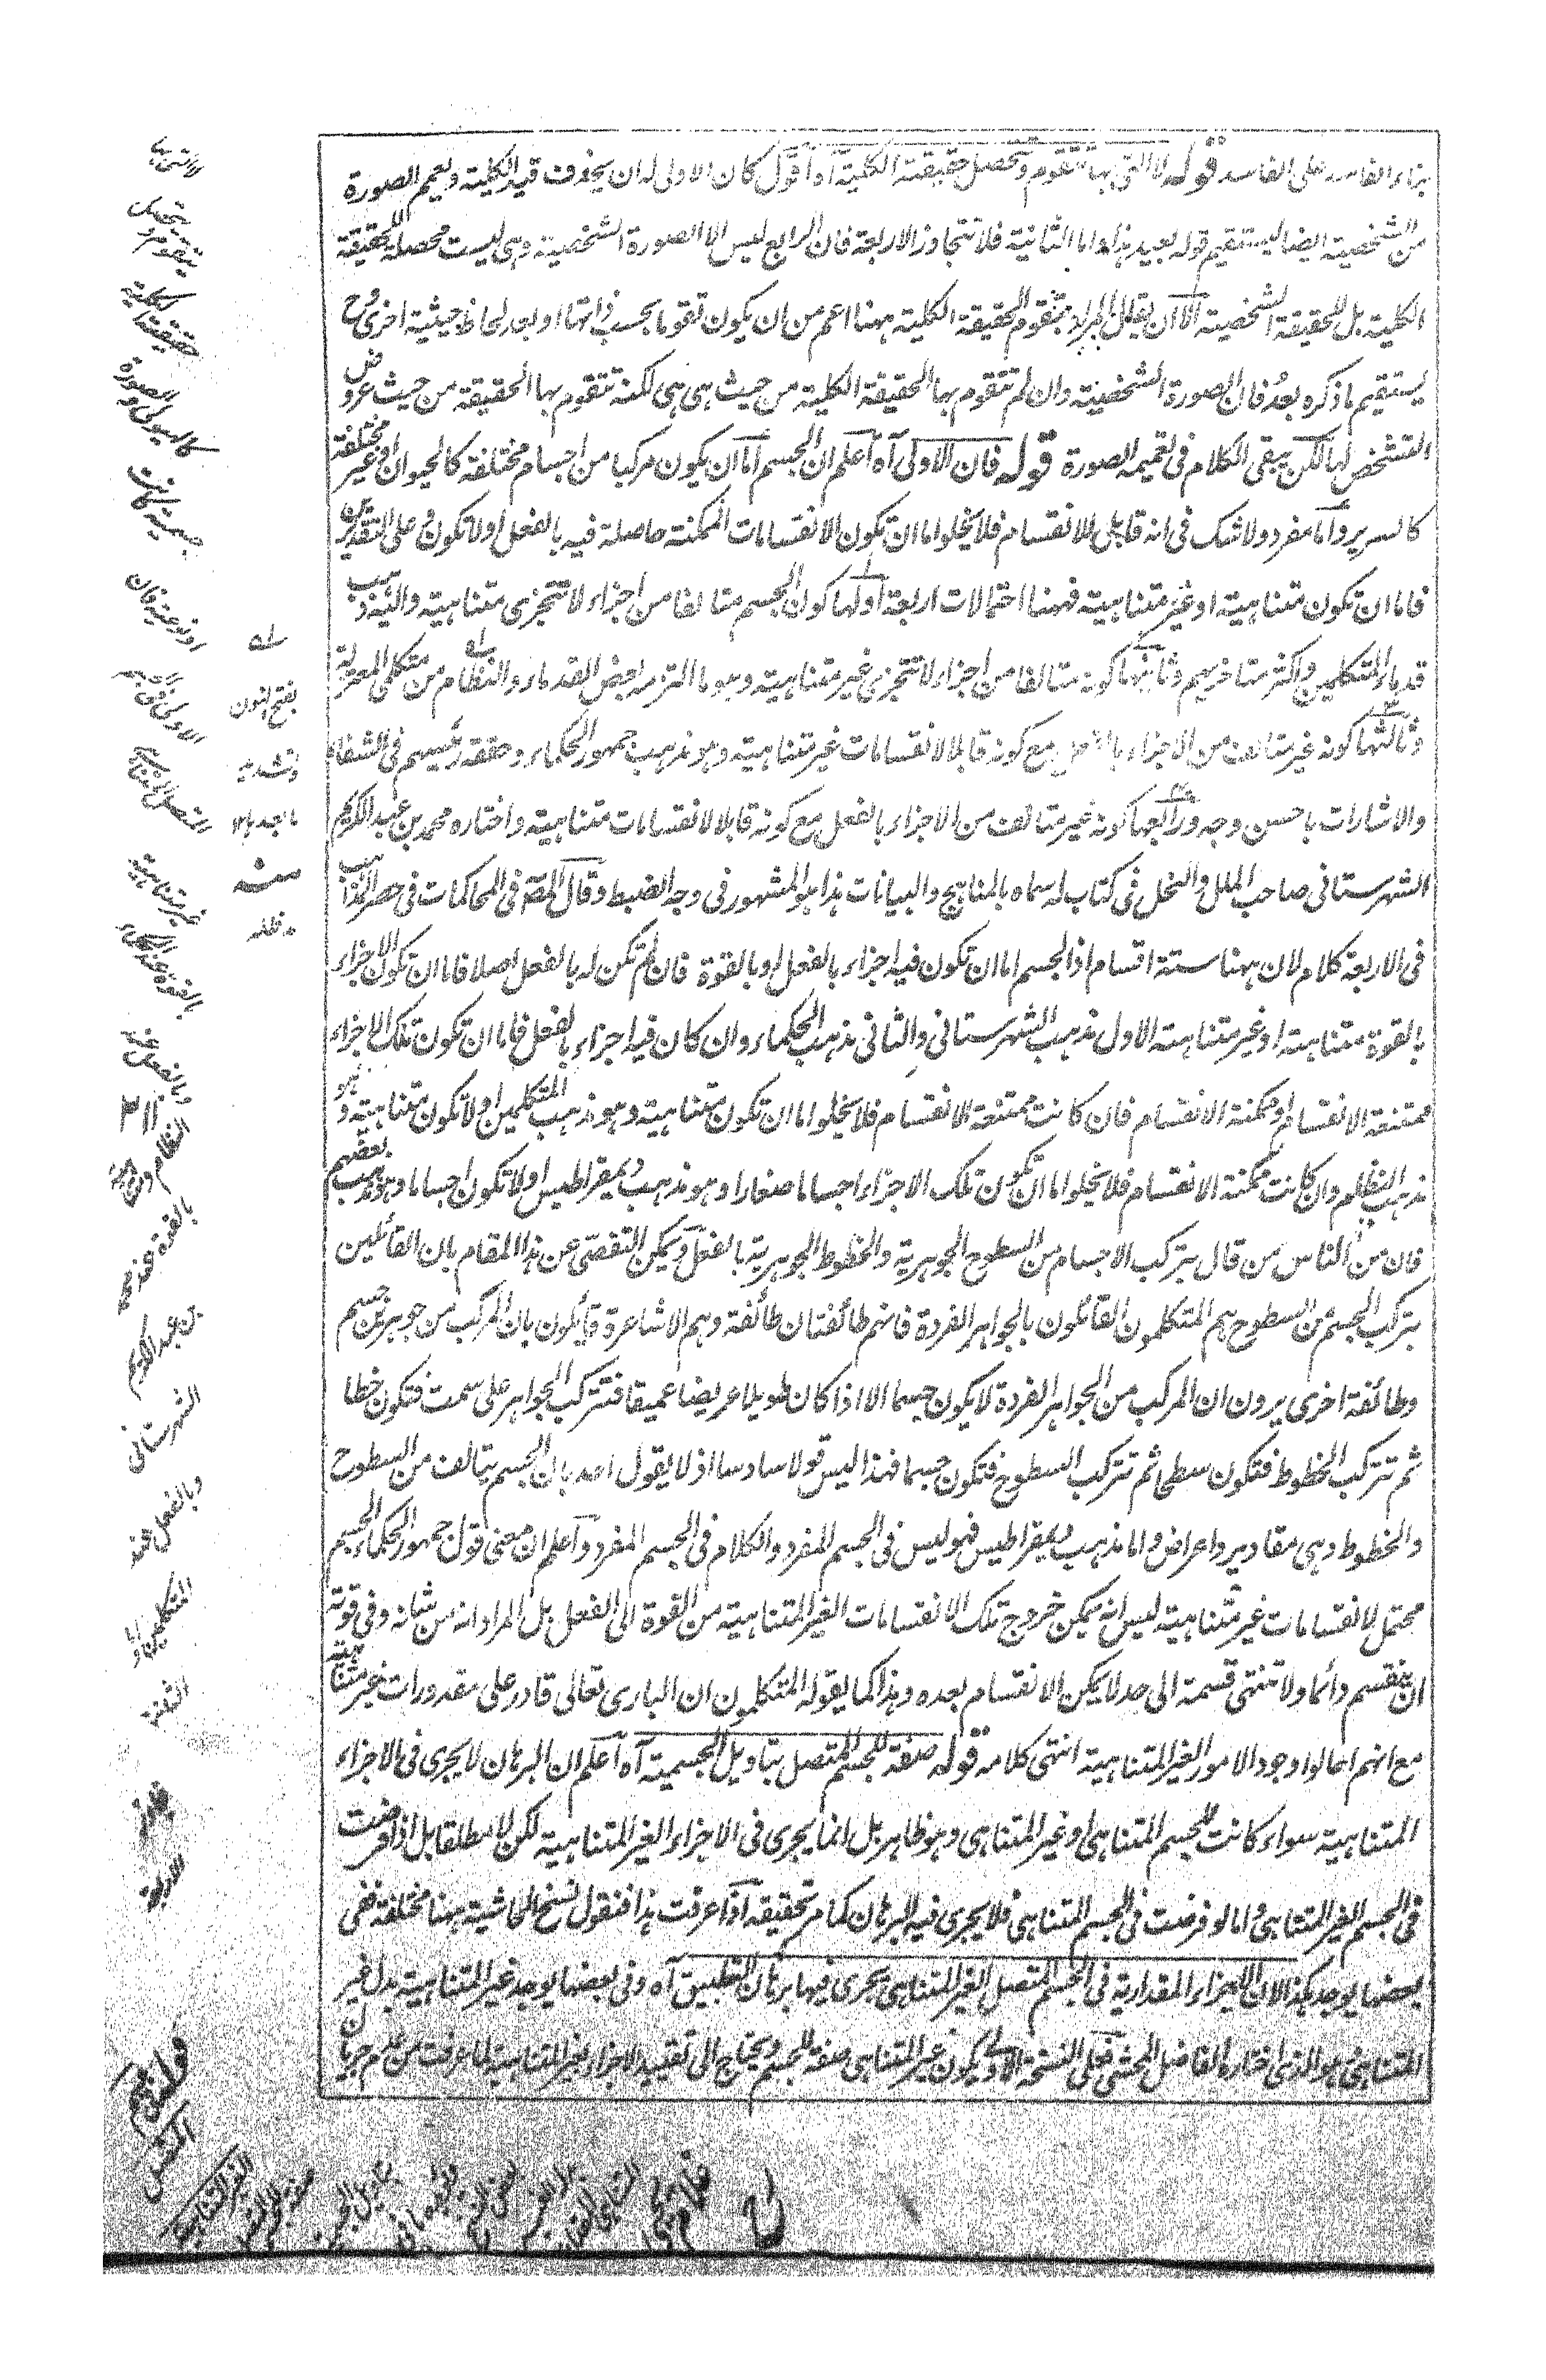 بناء الفاسد على الفاسد قوله لا التى بها تتقوم وتحصل حقيقة الكلية آه أقول كان الاولى له ان يحذف قيد الكلية ويعمم الصورة
من الشخصية ايضا ليستقيم قوله بعيد هذا واما الثانية فلا تتجاوز الاربعة فان الرابع ليس الا الصورة الشخصية وهى ليست محصلة للحقيقة
الكلية بل للحقيقة الشخصية الا ان يقال المراد بتقوم الحقيقة الكلية ههنا اعم من ان يكون تقوما بحسب ذاتها او بعد لحاظ حيثية اخرى وح
يستقيم ما ذكره بعد فان الصورة الشخصية وان لم تتقوم بها الحقيقة الكلية من حيث هى هى لكنه تتقوم بها الحقيقة من حيث عروض
التشخص لها لكن يبقى الكلام فى تعميمه الصورة قوله فان الاولى آه أعلم ان الجسم اما ان يكون مركبا من اجسام مختلفة كالحيوان او غير مختلفة
كالسرير واما مفرد ولا شك فى انه قابل للانقسام فلا يخلوا اما ان تكون الانقسامات الممكنة حاصلة فيه بالفعل اولا تكون وعلى التقديرين
فاما ان تكون متناهية او غير متناهية فههنا احتمالات اربعة أولها كون الجسم متالفا من اجزاء لا تتجزى متناهية واليه ذهب
قدماء المتكلمين واكثر متاخريهم وثانيها كونه متالفا من اجزاء لا تتجزى غير متناهية وهو ما التزمه بعض القدماء والنظام من متكلمى المعتزلة
وثالثها كونه غير متالف من الاجزاء بالفعل مع كونه قابلا لانقسامات غير متناهية وهو مذهب جمهور الحكماء وحققه رئيسهم فى الشفاء
والاشارات باحسن وجه ورابعها كونه غير متالف من الاجزاء بالفعل مع كونه قابلا لانقسامات متناهية واختاره محمد بن عبد الكريم
الشهرستانى صاحب الملل والنحل فى كتاب له سماه بالمناهج والبيانات هذا هو المشهور فى وجه الضبط وقال المصه فى المحاكمات فى حصر المذاهب
فى الاربعة كلام لان ههنا ستة اقسام اذ الجسم اما ان تكون فيه اجزاء بالفعل او بالقوة فان لم تكن له بالفعل اصلا فاما ان تكون الاجزاء
بالقوة متناهية او غير متناهية الاول مذهب الشهرستانى والثانى مذهب الحكماء وان كان فيه اجزاء بالفعل فاما ان تكون تلك الاجزاء
ممتنعة الانقسام او ممكنة الانقسام فان كانت ممتنعة الانقسام فلا يخلوا اما ان تكون متناهية وهو مذهب المتكلمين اولا تكون متناهية وهو
مذهب النظام وان كانت ممكنة الانقسام فلا يخلوا اما ان تكون تلك الاجزاء اجساما صغارا وهو مذهب ديمقراطيس اولا تكون اجساما وهو مذهب بعضهم
فان من الناس من قال بتركب الاجسام من السطوح الجوهرية والخطوط الجوهرية بالفعل ويمكن التفصى عن هذا المقام بان القائلين
بتركب الجسم من السطوح هم المتكلمون القائلون بالجواهر الفردة فانهم طائفتان طائفة وهم الاشاعرة قائلون بان المركب من جوهرين جسم
وطائفة اخرى يرون ان المركب من الجواهر الفردة لا يكون جسما الا اذا كان طويلا عريضا عميقا فتتركب الجواهر على سمت فتكون خطا
ثم تتركب الخطوط فتكون سطحا ثم تتركب السطوح فتكون جسما فهذا ليس قولا سادسا اذ لا يقول احد بان الجسم يتالف من السطوح
والخطوط وهى مقادير واعراض واما مذهب ديمقراطيس فهو ليس فى الجسم المفرد والكلام فى الجسم المفرد وأعلم ان معنى قول جمهور الحكماء الجسم
محتمل لانقسامات غير متناهية ليس انه يمكن خروج تلك الانقسامات الغير المتناهية من القوة الى الفعل بل المراد انه من شانه وفى قوته
ان ينقسم دائما ولا تنتهى قسمة الى حد لا يمكن الانقسام بعده وهذا كما يقوله المتكلمون ان البارى تعالى قادر على مقدورات غير متناهية
مع انهم احالوا وجود الامور الغير المتناهية انتهى كلامه قوله صفة للجسم المتصل بتاويل الجسمية آه أعلم ان البرهان لا يجرى فى الاجزاء
المتناهية سواء كانت للجسم المتناهى او غير المتناهى وهو ظاهر بل انما يجرى فى الاجزاء الغير المتناهية لكن لا مطلقا بل اذا فرضت
فى الجسم الغير المتناهى واما لو فرضت فى الجسم المتناهى فلا يجرى فيه البرهان كما مر تحقيقه اذا عرفت هذا فنقول نسخ الحاشية ههنا مختلفة ففى
بعضها يوجد هكذا لان الاجزاء المقدارية فى الجسم المتصل الغير المتناهى يجرى فيها برهان التطبيق آه وفى بعضها يوجد غير المتناهية بدل غير
المتناهى وهو الذى اختاره الفاضل المحشى فعلى النسخة الاولى يكون غير المتناهى صفة للجسم ويحتاج الى تقييد الاجزاء بغير المتناهية لما عرفت من عدم جريان
له
بفتح النون
وتشديد
ما بعدها ١٢
منه
مد ظله
يتقوم و تحصل
حقيقة الكلية
كالهيولى والصورة
جسمية كانت
او نوعية فان
غير متناهية
بالقوة عند الحكماء
وبالفعل عند
النظام
بالقوة عند محمد
بن عبد الكريم
الشهرستانى
وبالفعل عند
المتكلمين واما
الثانية
فلا تتجاوز
الاربعة
قوله